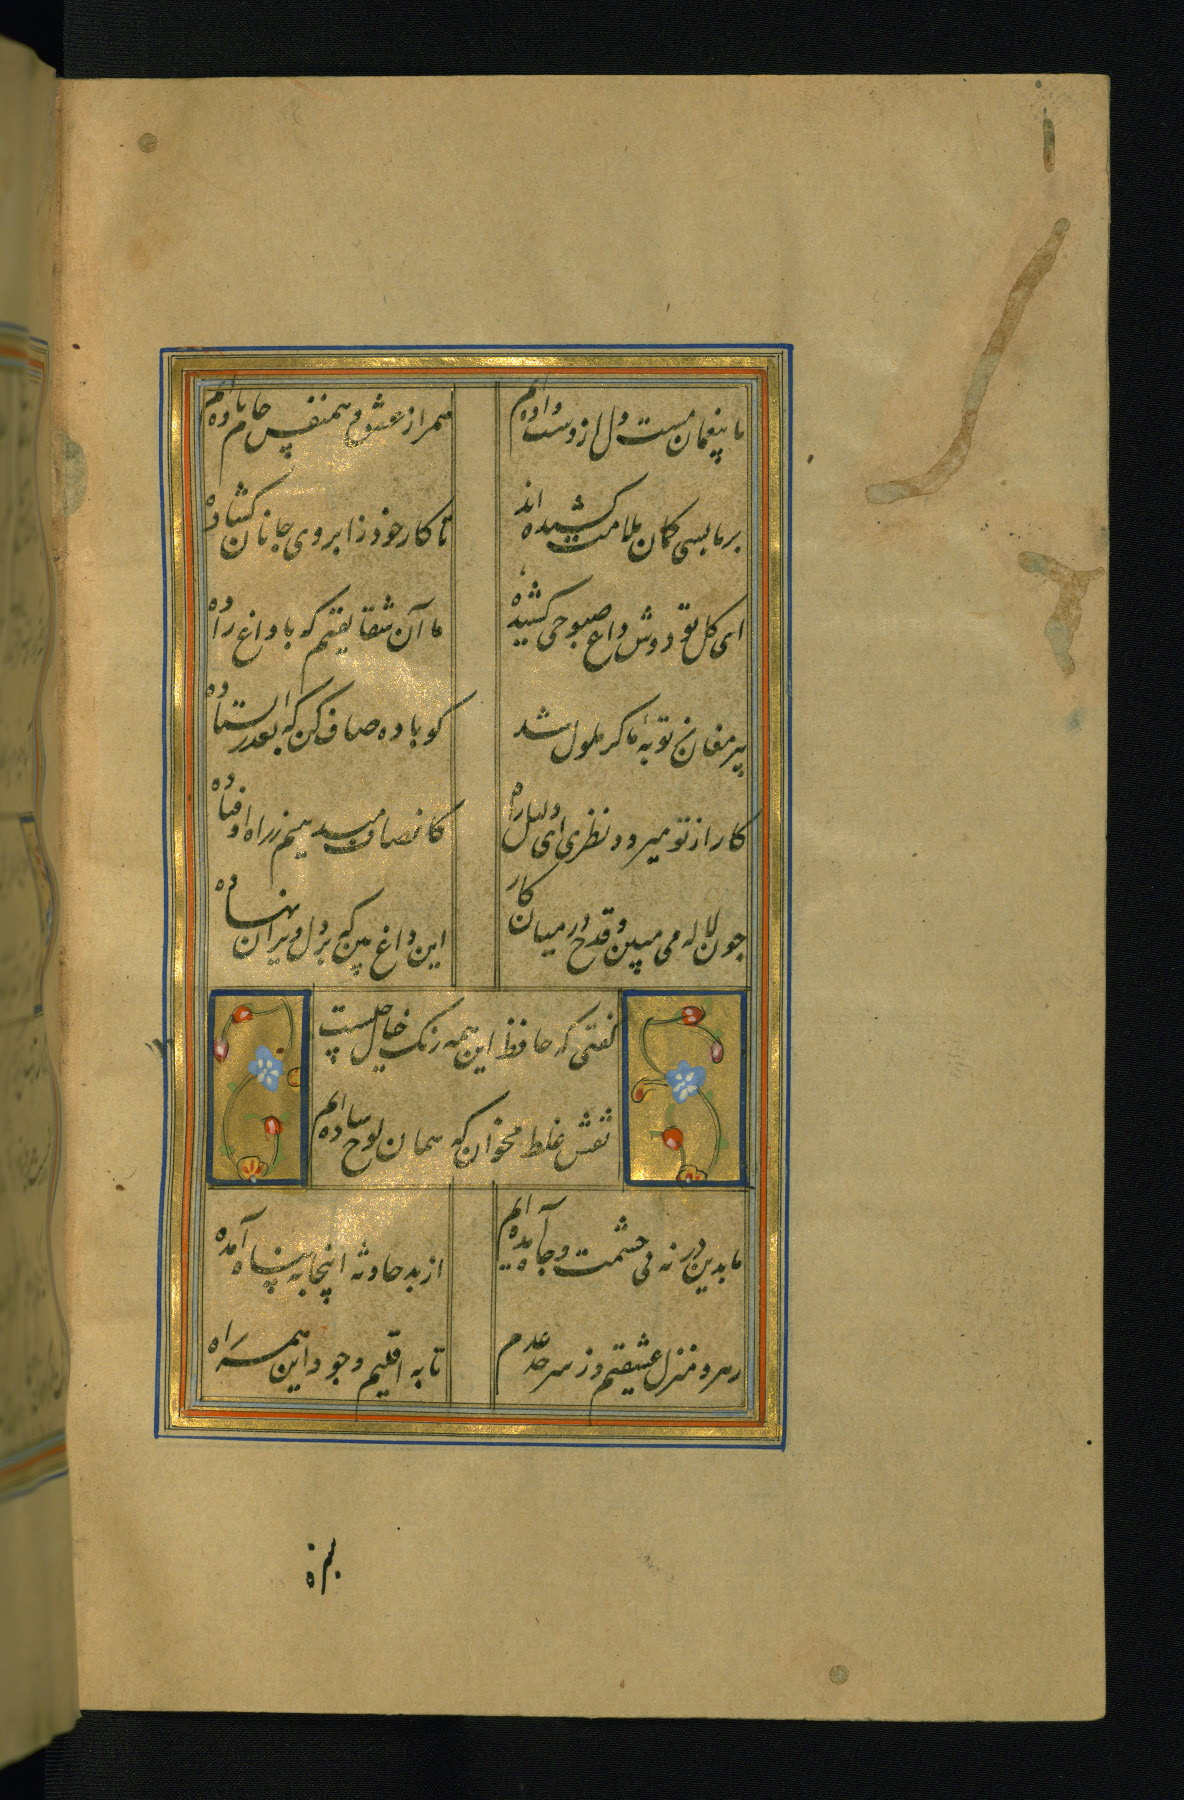 ما پیغمان مست دل از دست داده‌ایم
همراز عشق و همنفس جام باده‌ایم
بر ما بسی کمان ملامت کشیده‌اند
تا کار خود ز ابروی جانان گشاده
ای گل تو دوش داغ صبوحی کشیده
ما آن شقایقیم که با داغ زاده
پیر مغان ز توبهٔ ما گر ملول شد
گو باده صاف کن که بعذر ایستاده
کار از تو میرود نظری ای دلیل راه
کانصاف میدهیم ز راه اوفتاده
چون لاله می مبین و قدح در میان کار
این داغ بین که بر دل ویران نهاده
گفتی که حافظ این همه رنگ خیال چیست
نقش غلط مخوان که همان لوح ساده‌ایم
ما بدین در نه پی حشمت و جاه آمده‌ایم
از بد حادثه اینجا به پناه آمده
رهرو منزل عشقیم و ز سر حد عدم
تا به اقلیم وجود این همه راه
سبزه